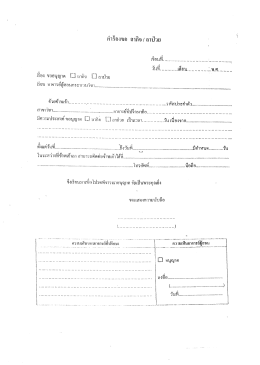 คำร้องขอ ลากิจ / ลาป่วย
เขียนที่
วันที่ เดือน พ.ศ.
เรื่อง ขออนุญาต ☐ ลากิจ ☐ ลาป่วย
เรียน อาจารย์ผู้สอนกระบวนวิชา
ข้าพเจ้า รหัสประจำตัว
ภาควิชา อาจารย์ที่ปรึกษาคือ
มีความประสงค์ขออนุญาต ☐ ลากิจ ☐ ลาป่วย เป็นเวลา วัน เนื่องจาก
ตั้งแต่วันที่ ถึงวันที่ มีกำหนด วัน
ในระหว่างที่ข้าพเจ้าลา สามารถติดต่อข้าพเจ้าได้ที่
โทรศัพท์ มือถือ
จึงเรียนมาเพื่อโปรดพิจารณาอนุญาต จักเป็นพระคุณยิ่ง
ขอแสดงความนับถือ
( )
ความเห็นอาจารย์ที่ปรึกษา ความเห็นอาจารย์ผู้สอน
☐ อนุญาต
ลงชื่อ
( )
วันที่